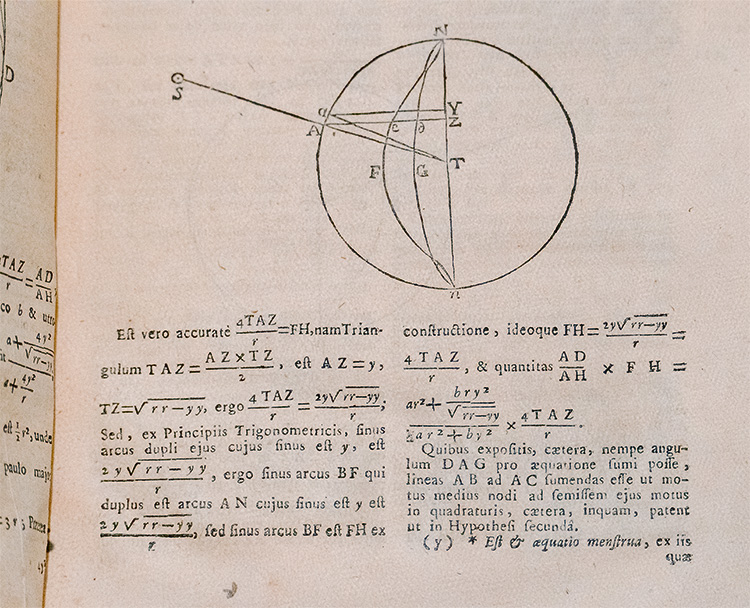 D
N
S
a
A
e
d
Y
Z
F
G
T
n
TAZ/r = AD/AH
co b & utro
a + 4y²/√rr−yy
a + 4y²/r
est ½ r², unde
paulo maj
Est vero accuratè 4TAZ/r = FH, nam Trian-
gulum TAZ = AZ×TZ/2, est AZ = y,
TZ = √rr−yy, ergo 4TAZ/r = 2y√rr−yy/r;
Sed, ex Principiis Trigonometricis, sinus
arcus dupli ejus cujus sinus est y, est
2y√rr−yy/r, ergo sinus arcus BF qui
duplus est arcus AN cujus sinus est y est
2y√rr−yy/r, sed sinus arcus BF est FH ex
constructione, ideoque FH = 2y√rr−yy/r =
4TAZ/r, & quantitas AD/AH × FH =
ar² + bry²/√rr−yy / 2ar² + by² × 4TAZ/r.
Quibus expositis, cætera, nempe angu-
lum DAG pro æquatione sumi posse,
lineas AB ad AC sumendas esse ut mo-
tus medius nodi ad semissem ejus motus
in quadraturis, cætera, inquam, patent
ut in Hypothesi secundâ.
(y) * Est & æquatio menstrua, ex iis
quæ